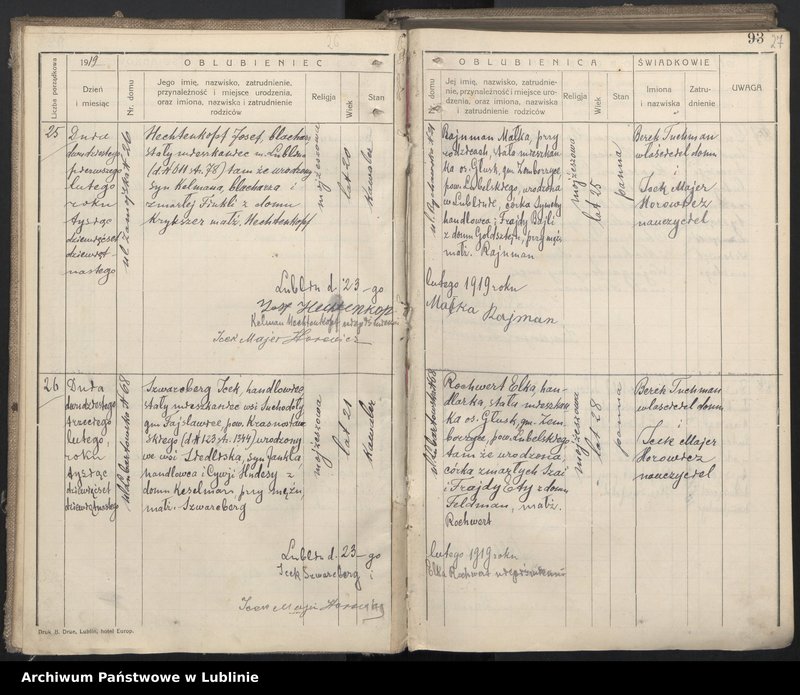 93
27
26
1919
OBLUBIENIEC
Liczba porządkowa
Dzień
i miesiąc
Nr. domu
Jego imię, nazwisko, zatrudnienie,
przynależność i miejsce urodzenia,
oraz imiona, nazwiska i zatrudnienie
rodziców
Religja
Wiek
Stan
OBLUBIENICA
Nr. domu
Jej imię, nazwisko, zatrudnie-
nie, przynależność i miejsce uro-
dzenia, oraz imiona, nazwiska
i zatrudnienie rodziców
Religja
Wiek
Stan
ŚWIADKOWIE
Imiona
i nazwiska
Zatru-
dnienie
UWAGA
25
Dnia
dwudziestego
pierwszego
lutego
roku
tysiąc
dziewięćset
dziewięt-
nastego
Hechtenkopf Josef, blacharz
stały mieszkaniec m. Lublina
tam że urodzony
syn Kelmana, blacharza i
zmarłej Frukli z domu
Krykszer małż. Hechtenkopf
mojżeszowa
lat 20
kawaler
Rajnman Małka, przy
rodzicach, stała mieszkan-
ka os. Głusk, gm. Zemborzyce,
pow. Lubelskiego, urodzona
w Lublinie, córka Symchy
handlowca i Frajdy Bajli
z domu Goldsztejn, przy mężu
małż. Rajnman
mojżeszowa
lat 25
panna
Berek Tuchman
właściciel domu
i
Icek Majer
Horowicz
nauczyciel
Lublin d. 23-go
lutego 1919 roku
Kelman Hechtenkopf
Icek Majer Horowicz
Małka Rajman
26
Dnia
dwudziestego
trzeciego
lutego,
roku
tysiąc
dziewięćset
dziewiętnastego
ul. Lubartowska № 68
Szwarcberg Icek, handlowiec
stały mieszkaniec wsi Suchodoły
gm. Fajsławice, pow. Krasnostaw-
skiego urodzony
we wsi Siedliska, syn Jankla
handlowca i Cywji Hudesy z
domu Keselman przy mężu
małż. Szwarcberg
mojżeszowa
lat 21
kawaler
Rochwert Elka, han-
dlarka, stała mieszkan-
ka os. Głusk, gm. Zem-
borzyce, pow. Lubelskiego
tam że urodzona,
córka zmarłych Szai
i Frajdy Ety z domu
Feldman, małż.
Rochwert
mojżeszowa
lat 28
panna
Berek Tuchman
właściciel domu
i
Icek Majer
Horowicz
nauczyciel
Lublin d. 23-go
lutego 1919 roku
Icek Szwarcberg
Elka Rochwert
Icek Majer Horowicz
Druk B. Drue, Lublin, hotel Europ.
Archiwum Państwowe w Lublinie